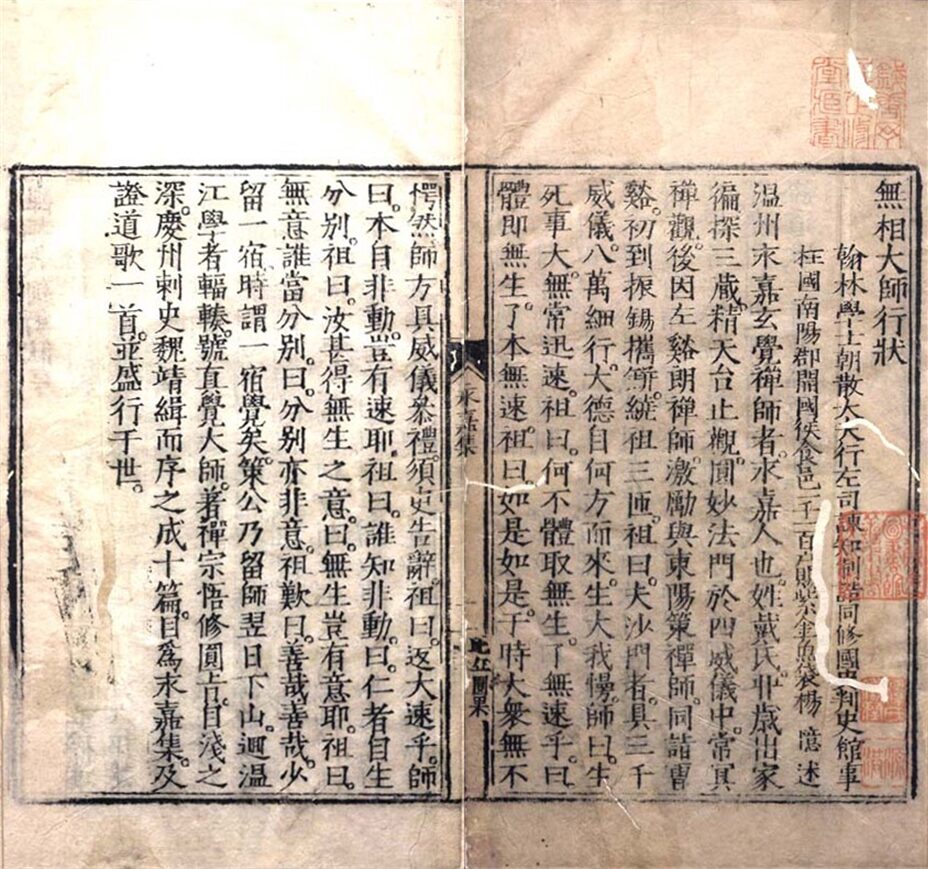 無相大師行狀
翰林學士朝散大夫行左司諫知制誥同修國史判史館事
柱國南陽郡開國侯食邑一千一百戶賜紫金魚袋楊億述
温州永嘉玄覺禪師者。永嘉人也。姓戴氏。丱歲出家
徧探三藏。精天台止觀圓妙法門。於四威儀中。常冥
禪觀。後因左谿朗禪師。激勵與東陽策禪師。同詣曹
谿。初到振錫攜缾。繞祖三匝。祖曰。夫沙門者。具三千
威儀。八萬細行。大德自何方而來。生大我慢。師曰。生
死事大。無常迅速。祖曰。何不體取無生。了無速乎。曰。
體即無生。了本無速。祖曰。如是如是。于時大衆無不
永嘉集
愕然。師方具威儀叅禮。須臾告辭。祖曰。返大速乎。師
曰。本自非動。豈有速耶。祖曰。誰知非動。曰。仁者自生
分別。祖曰。汝甚得無生之意。曰。無生豈有意耶。祖曰。
無意誰當分別。曰。分別亦非意。祖歎曰。善哉善哉。少
留一宿。時謂一宿覺矣。策公乃留。師翌日下山。迴温
江。學者輻輳。號直覺大師。著禪宗悟修圓旨。自淺之
深。慶州刺史魏靖緝而序之。成十篇。目爲永嘉集。及
證道歌一首。並盛行于世。